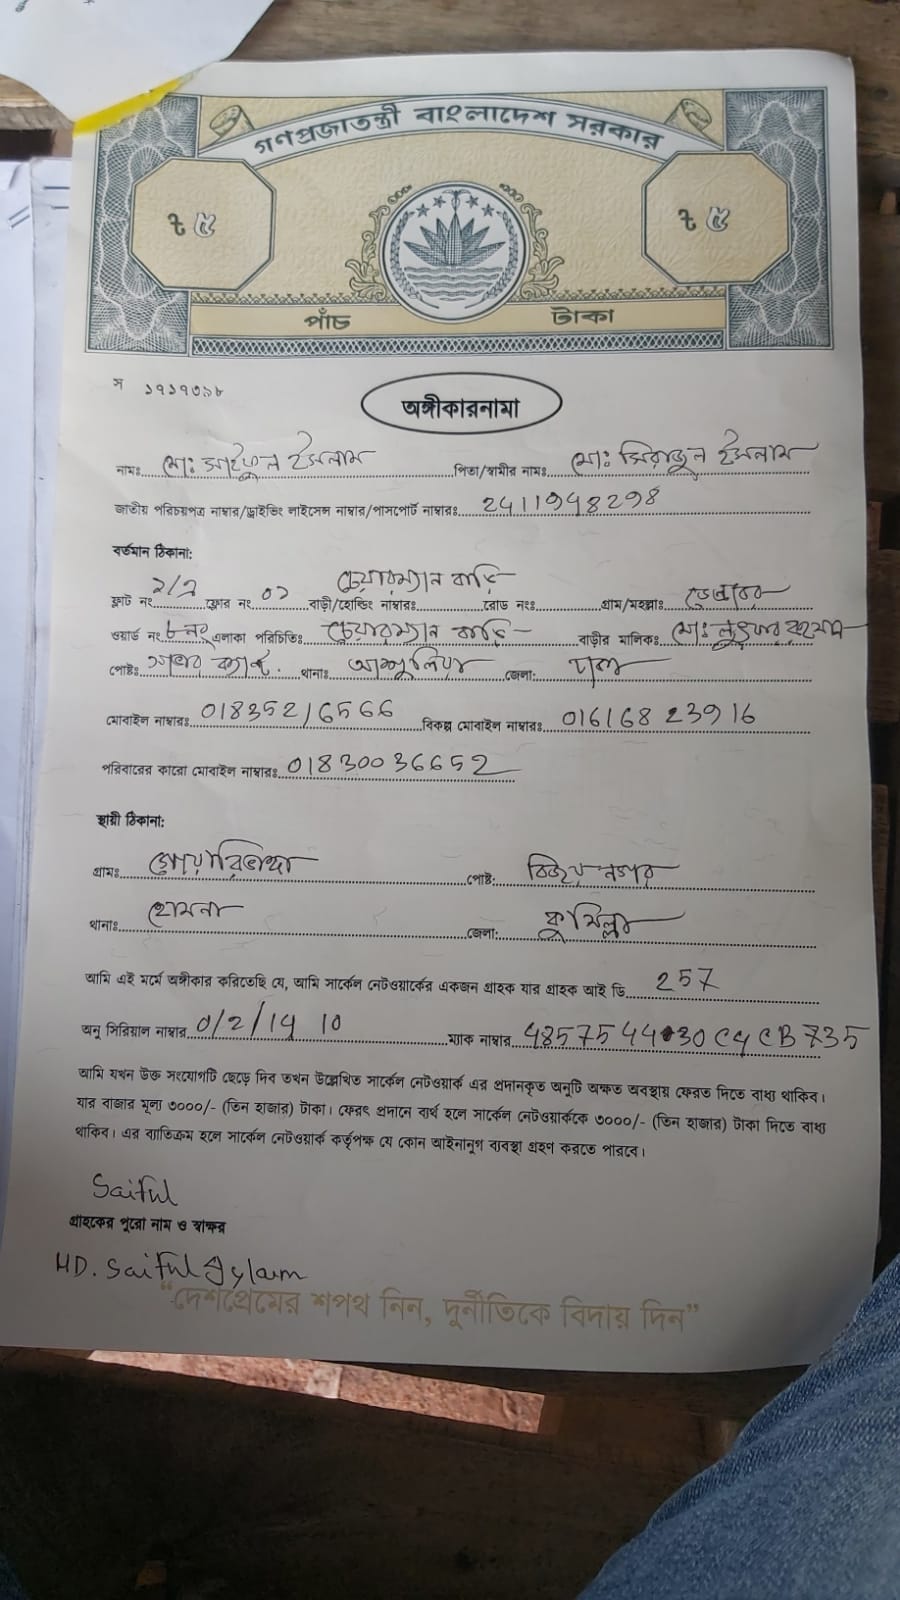 গণপ্রজাতন্ত্রী বাংলাদেশ সরকার
৳ ৫ ৳ ৫
পাঁচ টাকা
স ১৭১৭৩৯৮
অঙ্গীকারনামা
নামঃ মোঃ সাইফুল ইসলাম পিতা/স্বামীর নামঃ মোঃ সিরাজুল ইসলাম
জাতীয় পরিচয়পত্র নাম্বার/ড্রাইভিং লাইসেন্স নাম্বার/পাসপোর্ট নাম্বারঃ 2411948298
বর্তমান ঠিকানা:
ফ্লাট নং ফ্লোর নং ০১ বাড়ী/হোল্ডিং নাম্বারঃ চেয়ারম্যান বাড়ি রোড নংঃ গ্রাম/মহল্লাঃ
ওয়ার্ড নং ৮ নং এলাকা পরিচিতিঃ চেয়ারম্যান বাড়ি বাড়ীর মালিকঃ মোঃ লুৎফর রহমান
পোষ্টঃ থানাঃ আশুলিয়া জেলা: ঢাকা
মোবাইল নাম্বারঃ 01835216566 বিকল্প মোবাইল নাম্বারঃ 01616823916
পরিবারের কারো মোবাইল নাম্বারঃ 01830036652
স্থায়ী ঠিকানা:
গ্রামঃ গোয়ারিভাঙ্গা পোষ্ট: বিজয় নগর
থানাঃ হোমনা জেলা: কুমিল্লা
আমি এই মর্মে অঙ্গীকার করিতেছি যে, আমি সার্কেল নেটওয়ার্কের একজন গ্রাহক যার গ্রাহক আই ডি 257
অনু সিরিয়াল নাম্বার 0/2/14 10 ম্যাক নাম্বার
আমি যখন উক্ত সংযোগটি ছেড়ে দিব তখন উল্লেখিত সার্কেল নেটওয়ার্ক এর প্রদানকৃত অনুটি অক্ষত অবস্থায় ফেরত দিতে বাধ্য থাকিব।
যার বাজার মূল্য ৩০০০/- (তিন হাজার) টাকা। ফেরৎ প্রদানে ব্যর্থ হলে সার্কেল নেটওয়ার্ককে ৩০০০/- (তিন হাজার) টাকা দিতে বাধ্য
থাকিব। এর ব্যতিক্রম হলে সার্কেল নেটওয়ার্ক কর্তৃপক্ষ যে কোন আইনানুগ ব্যবস্থা গ্রহণ করতে পারবে।
Saiful
গ্রাহকের পুরো নাম ও স্বাক্ষর
MD. Saiful Islam
“দেশপ্রেমের শপথ নিন, দুর্নীতিকে বিদায় দিন”